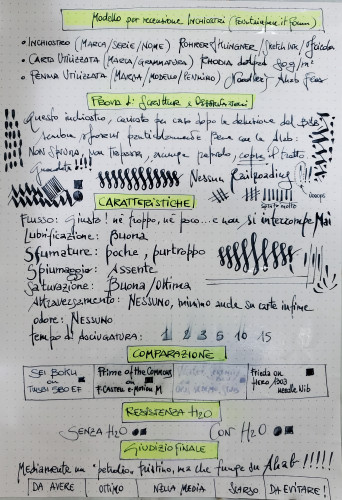 Modello per recensione Inchiostri (Fountainpen.it forum)
• Inchiostro (Marca/Serie/Nome) Rohrer & Klingner / Sketch Ink /
• Carta Utilizzata (Marca/Grammatura) Rhodia dotpad 80 g/m²
• Penna Utilizzata (Marca/Modello/Pennino) Noodler's Ahab Flex
Prova di Scrittura e Osservazioni
Questo inchiostro, caricato per caso dopo la delusione del
sembra sposarsi particolarmente bene con la Ahab:
Non spiuma, non trapassa, asciuga
Guardate!!!
Nessun Railroading
ooops
Caratteristiche
Flusso: Giusto! nè troppo, nè poco... e non si interrompe Mai
Lubrificazione: Buona
Sfumature: poche, purtroppo
Spiumaggio: Assente
Saturazione: Buona/Ottima
Attraversamento: Nessuno, minimo anche su carte infime
odore: Nessuno
tempo di asciugatura: 1 2 3 5 10 15
Comparazione
Sei Boku on TWSBI 580 EF
Prime of the Commons on F. Castell e-Motion M
Frieda on Hero 1003 needle Nib
Resistenza H2O
Senza H2O
Con H2O
Giudizio finale
Mediamente un pelino, ma che funge su Ahab!!!!!
Da avere
Ottimo
Nella media
Scarso
Da evitare!